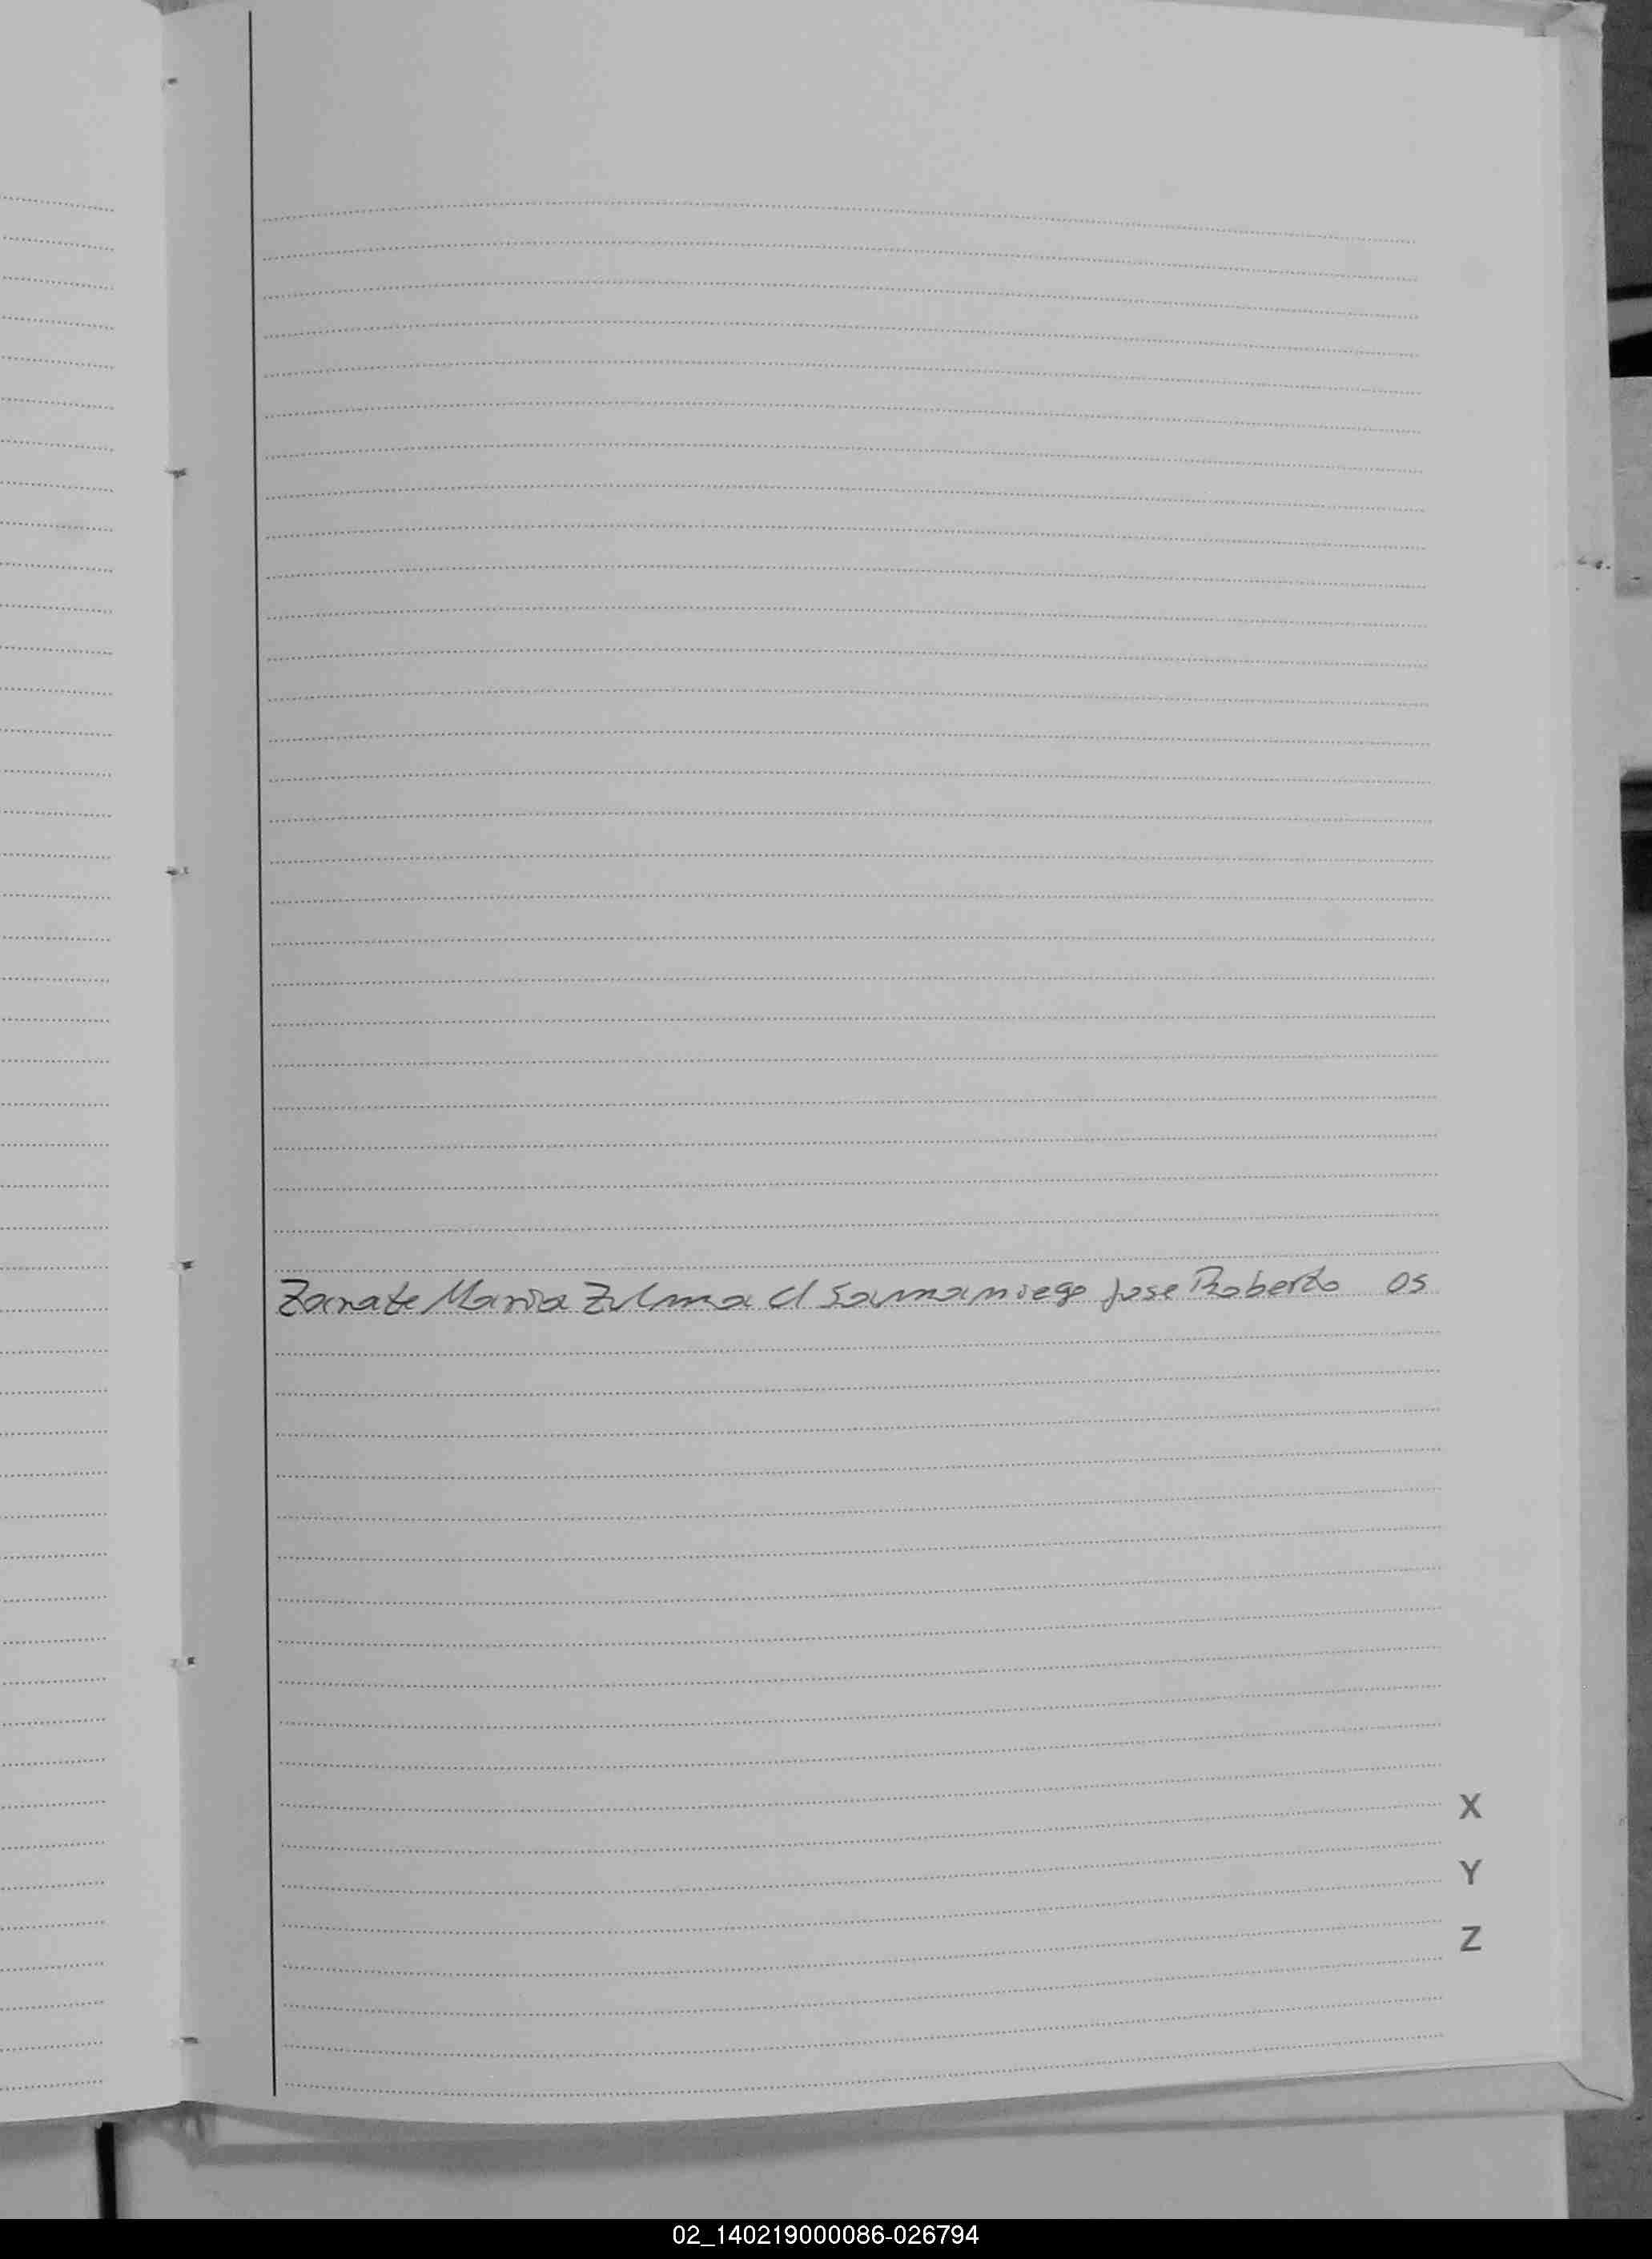 Zarate Maria Zulma c/ Samaniego Jose Roberto 05
X
Y
Z
02_140219000086-026794